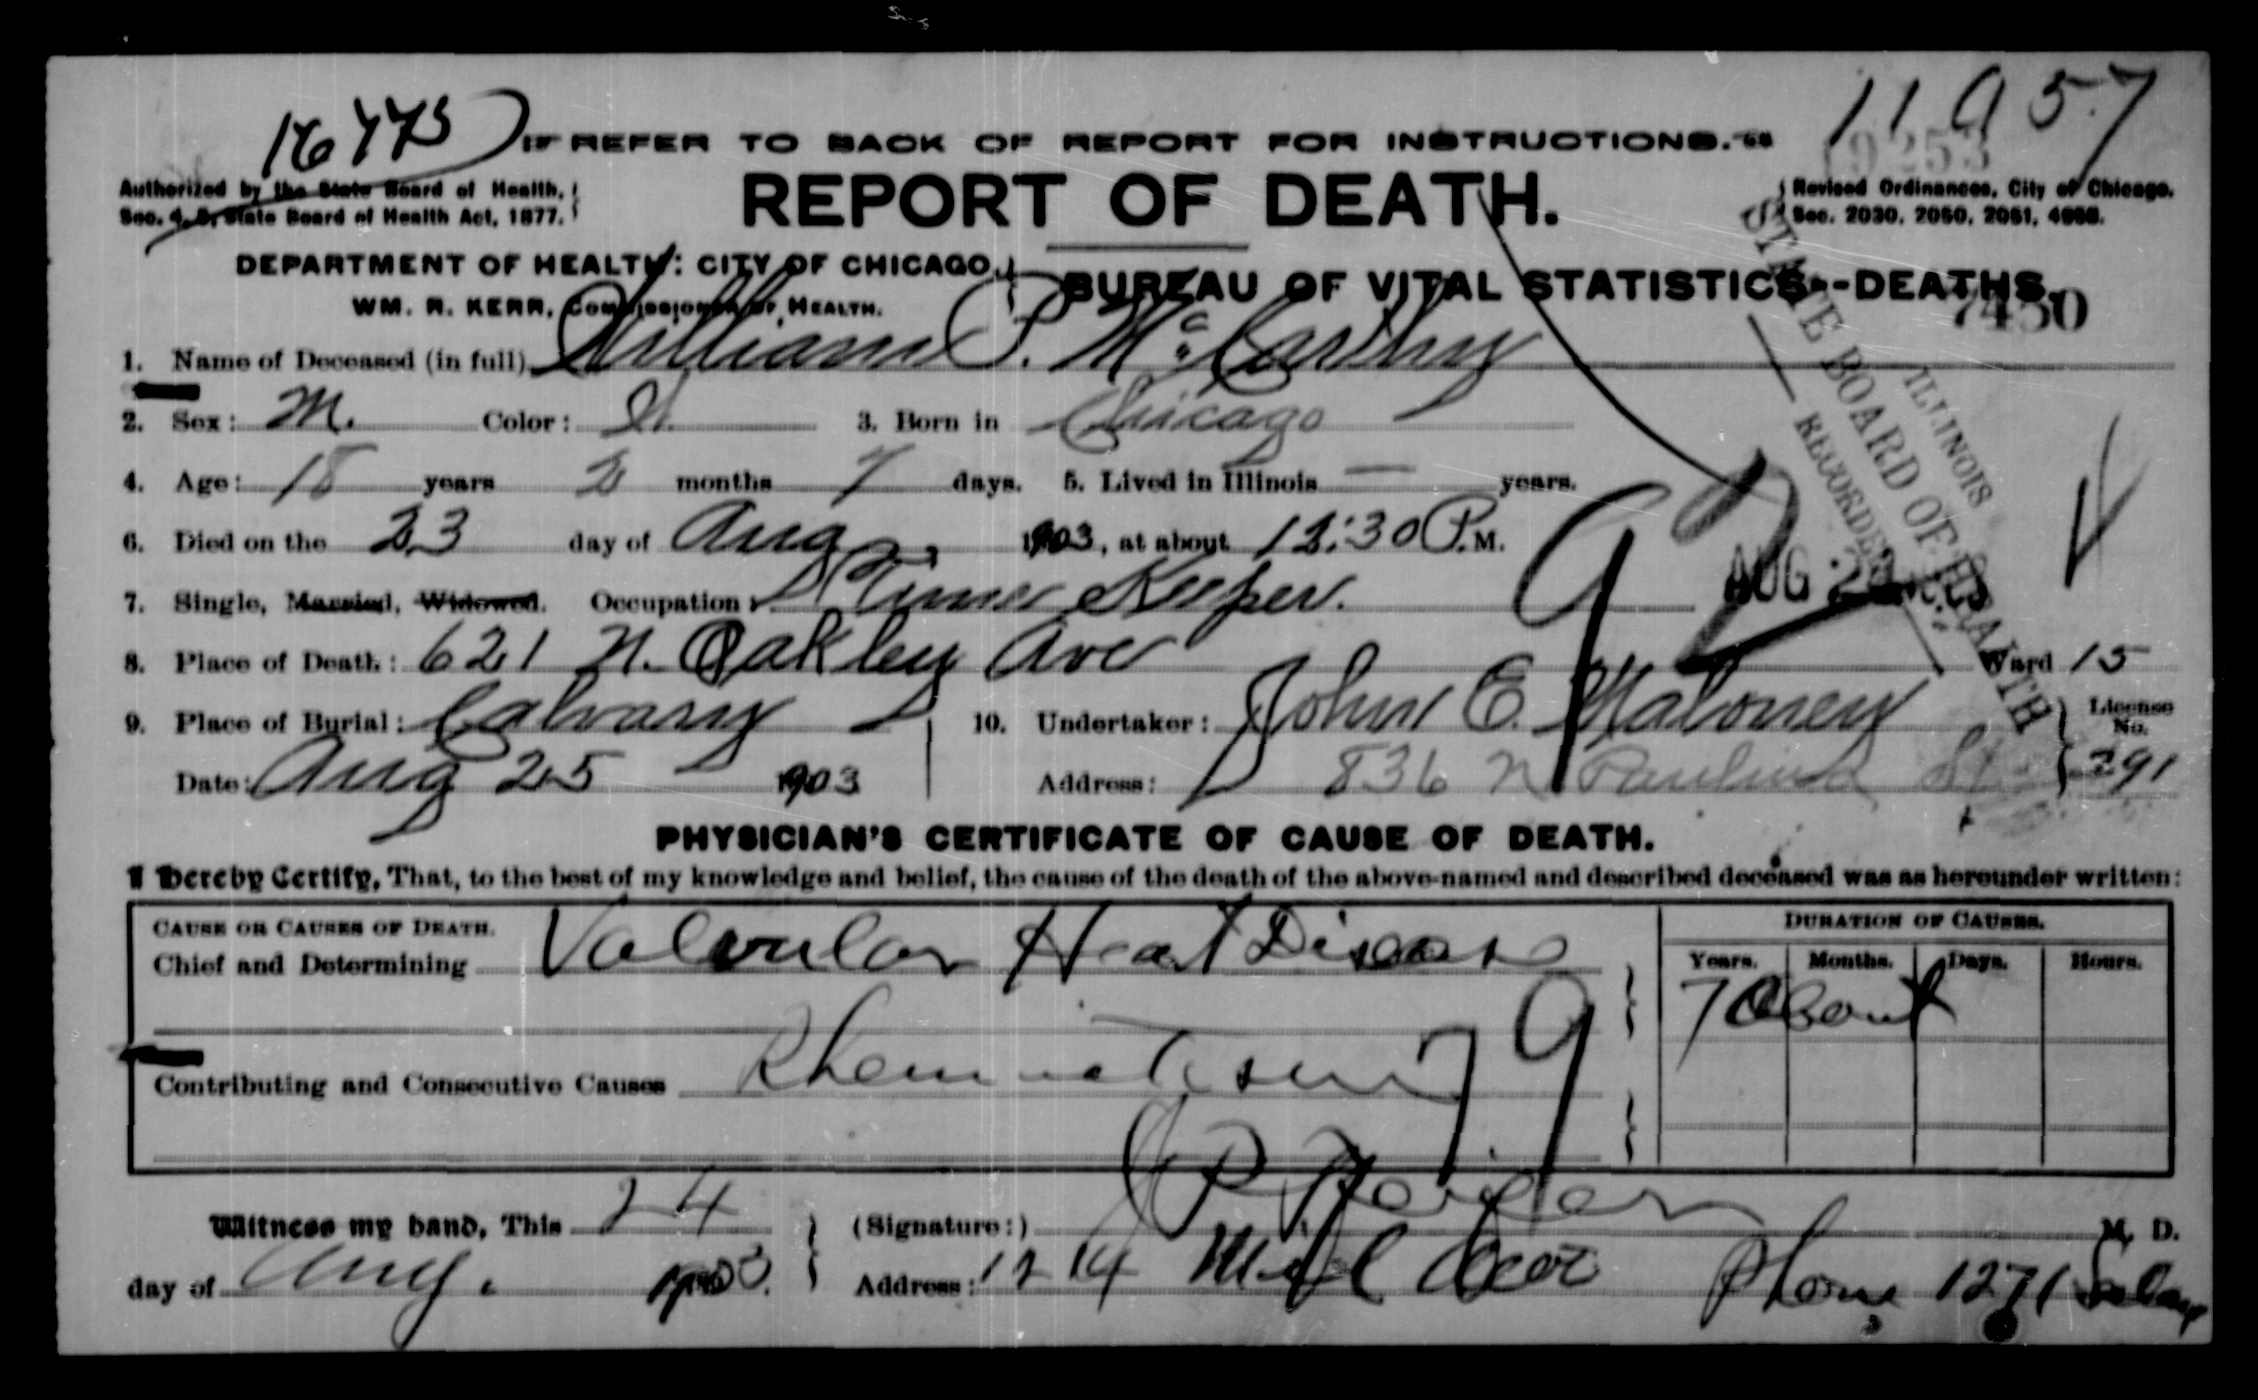 16773
11957
☞ REFER TO BACK OF REPORT FOR INSTRUCTIONS. ☜
9253
Authorized by the State Board of Health,
Sec. 4, State Board of Health Act, 1877.
REPORT OF DEATH.
Revised Ordinances, City of Chicago.
Sec. 2030, 2050, 2051, 4668.
DEPARTMENT OF HEALTH: CITY OF CHICAGO.
WM. R. KERR, COMMISSIONER OF HEALTH.
BUREAU OF VITAL STATISTICS--DEATHS.
7450
1. Name of Deceased (in full) William P. McCarthy
2. Sex: M. Color: W. 3. Born in Chicago
4. Age: 18 years 2 months 7 days. 5. Lived in Illinois — years.
6. Died on the 23 day of Aug 1903, at about 12:30 P.M.
7. Single, Married, Widowed. Occupation: Time Keeper.
92
AUG
ILLINOIS
STATE BOARD OF HEALTH
RECORDED
8. Place of Death: 621 N. Oakley Ave Ward 15
9. Place of Burial: Calvary 10. Undertaker: John E. Maloney License No.
Date: Aug 25 1903 Address: 836 N Paulina St 291
PHYSICIAN'S CERTIFICATE OF CAUSE OF DEATH.
I Hereby Certify, That, to the best of my knowledge and belief, the cause of the death of the above-named and described deceased was as hereunder written:
CAUSE OR CAUSES OF DEATH. DURATION OF CAUSES.
Chief and Determining Valvular Heart Disease
Years. Months. Days. Hours.
7 About
79
Contributing and Consecutive Causes Rheumatism
Witness my hand, This 24 (Signature:) M. D.
day of Aug. 1903. Address: 1214 Phone 1271